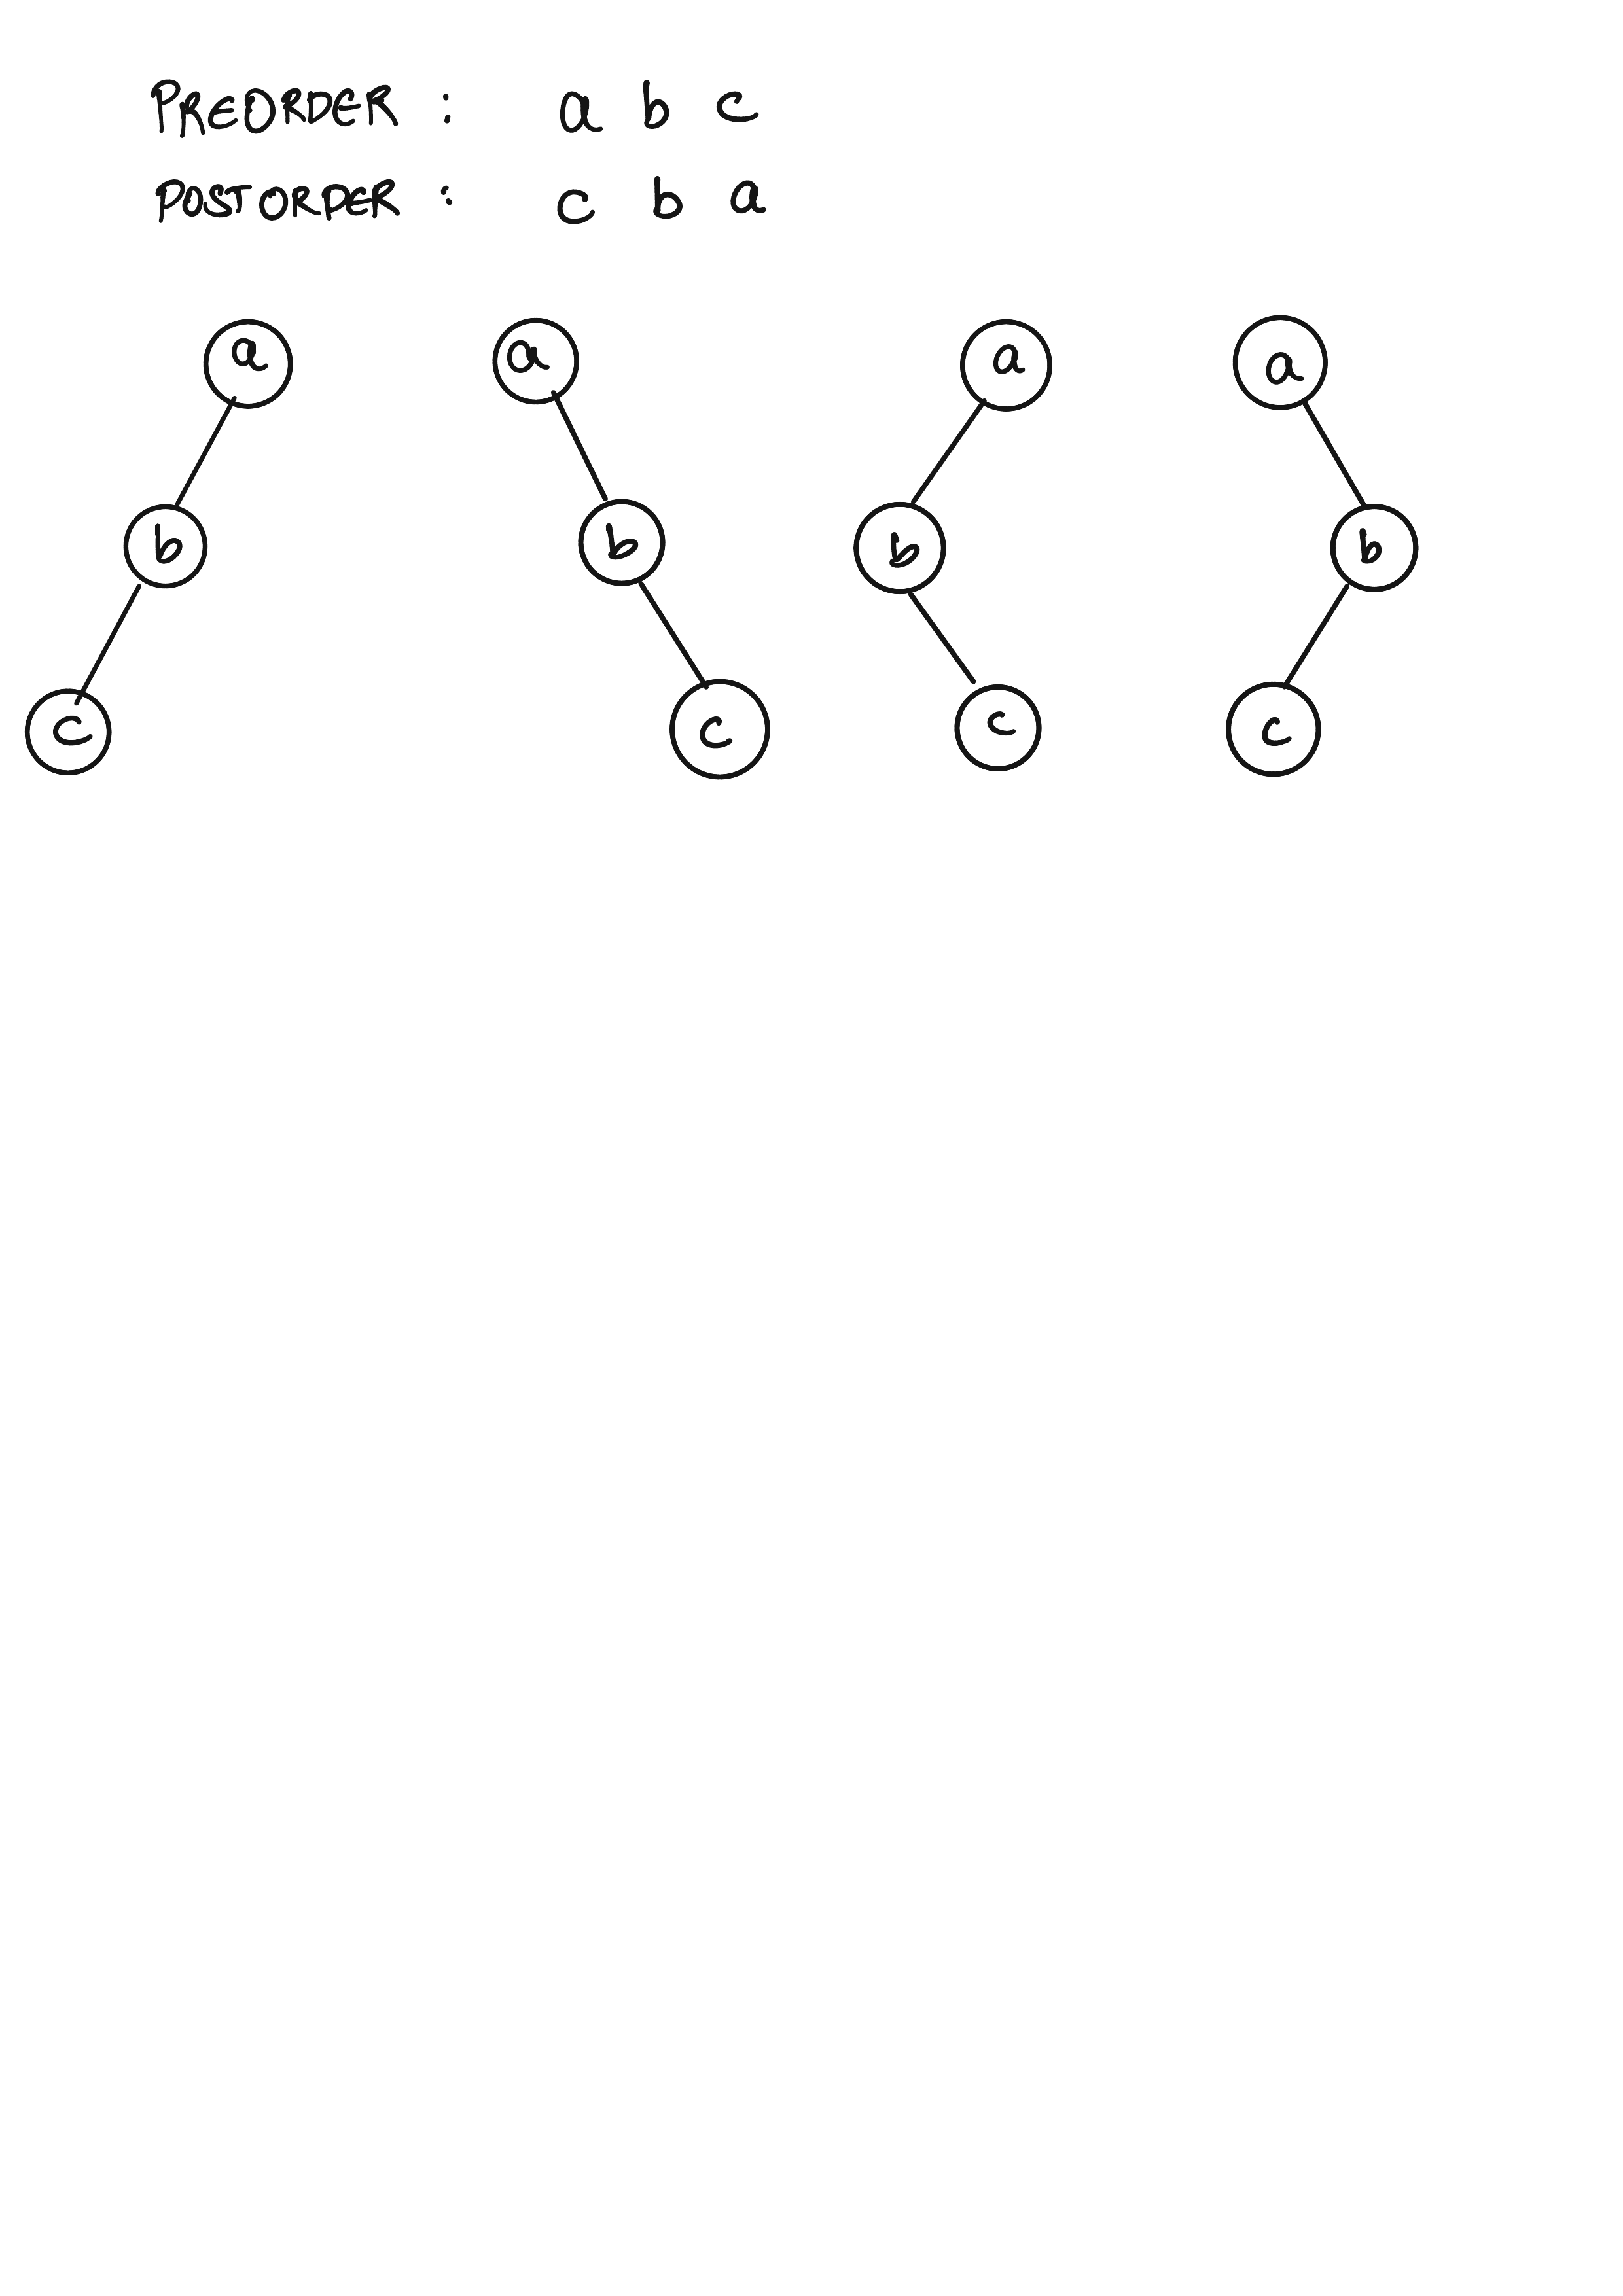 PREORDER : a b c
POSTORDER : c b a
a a a a
b b b b
c c c c